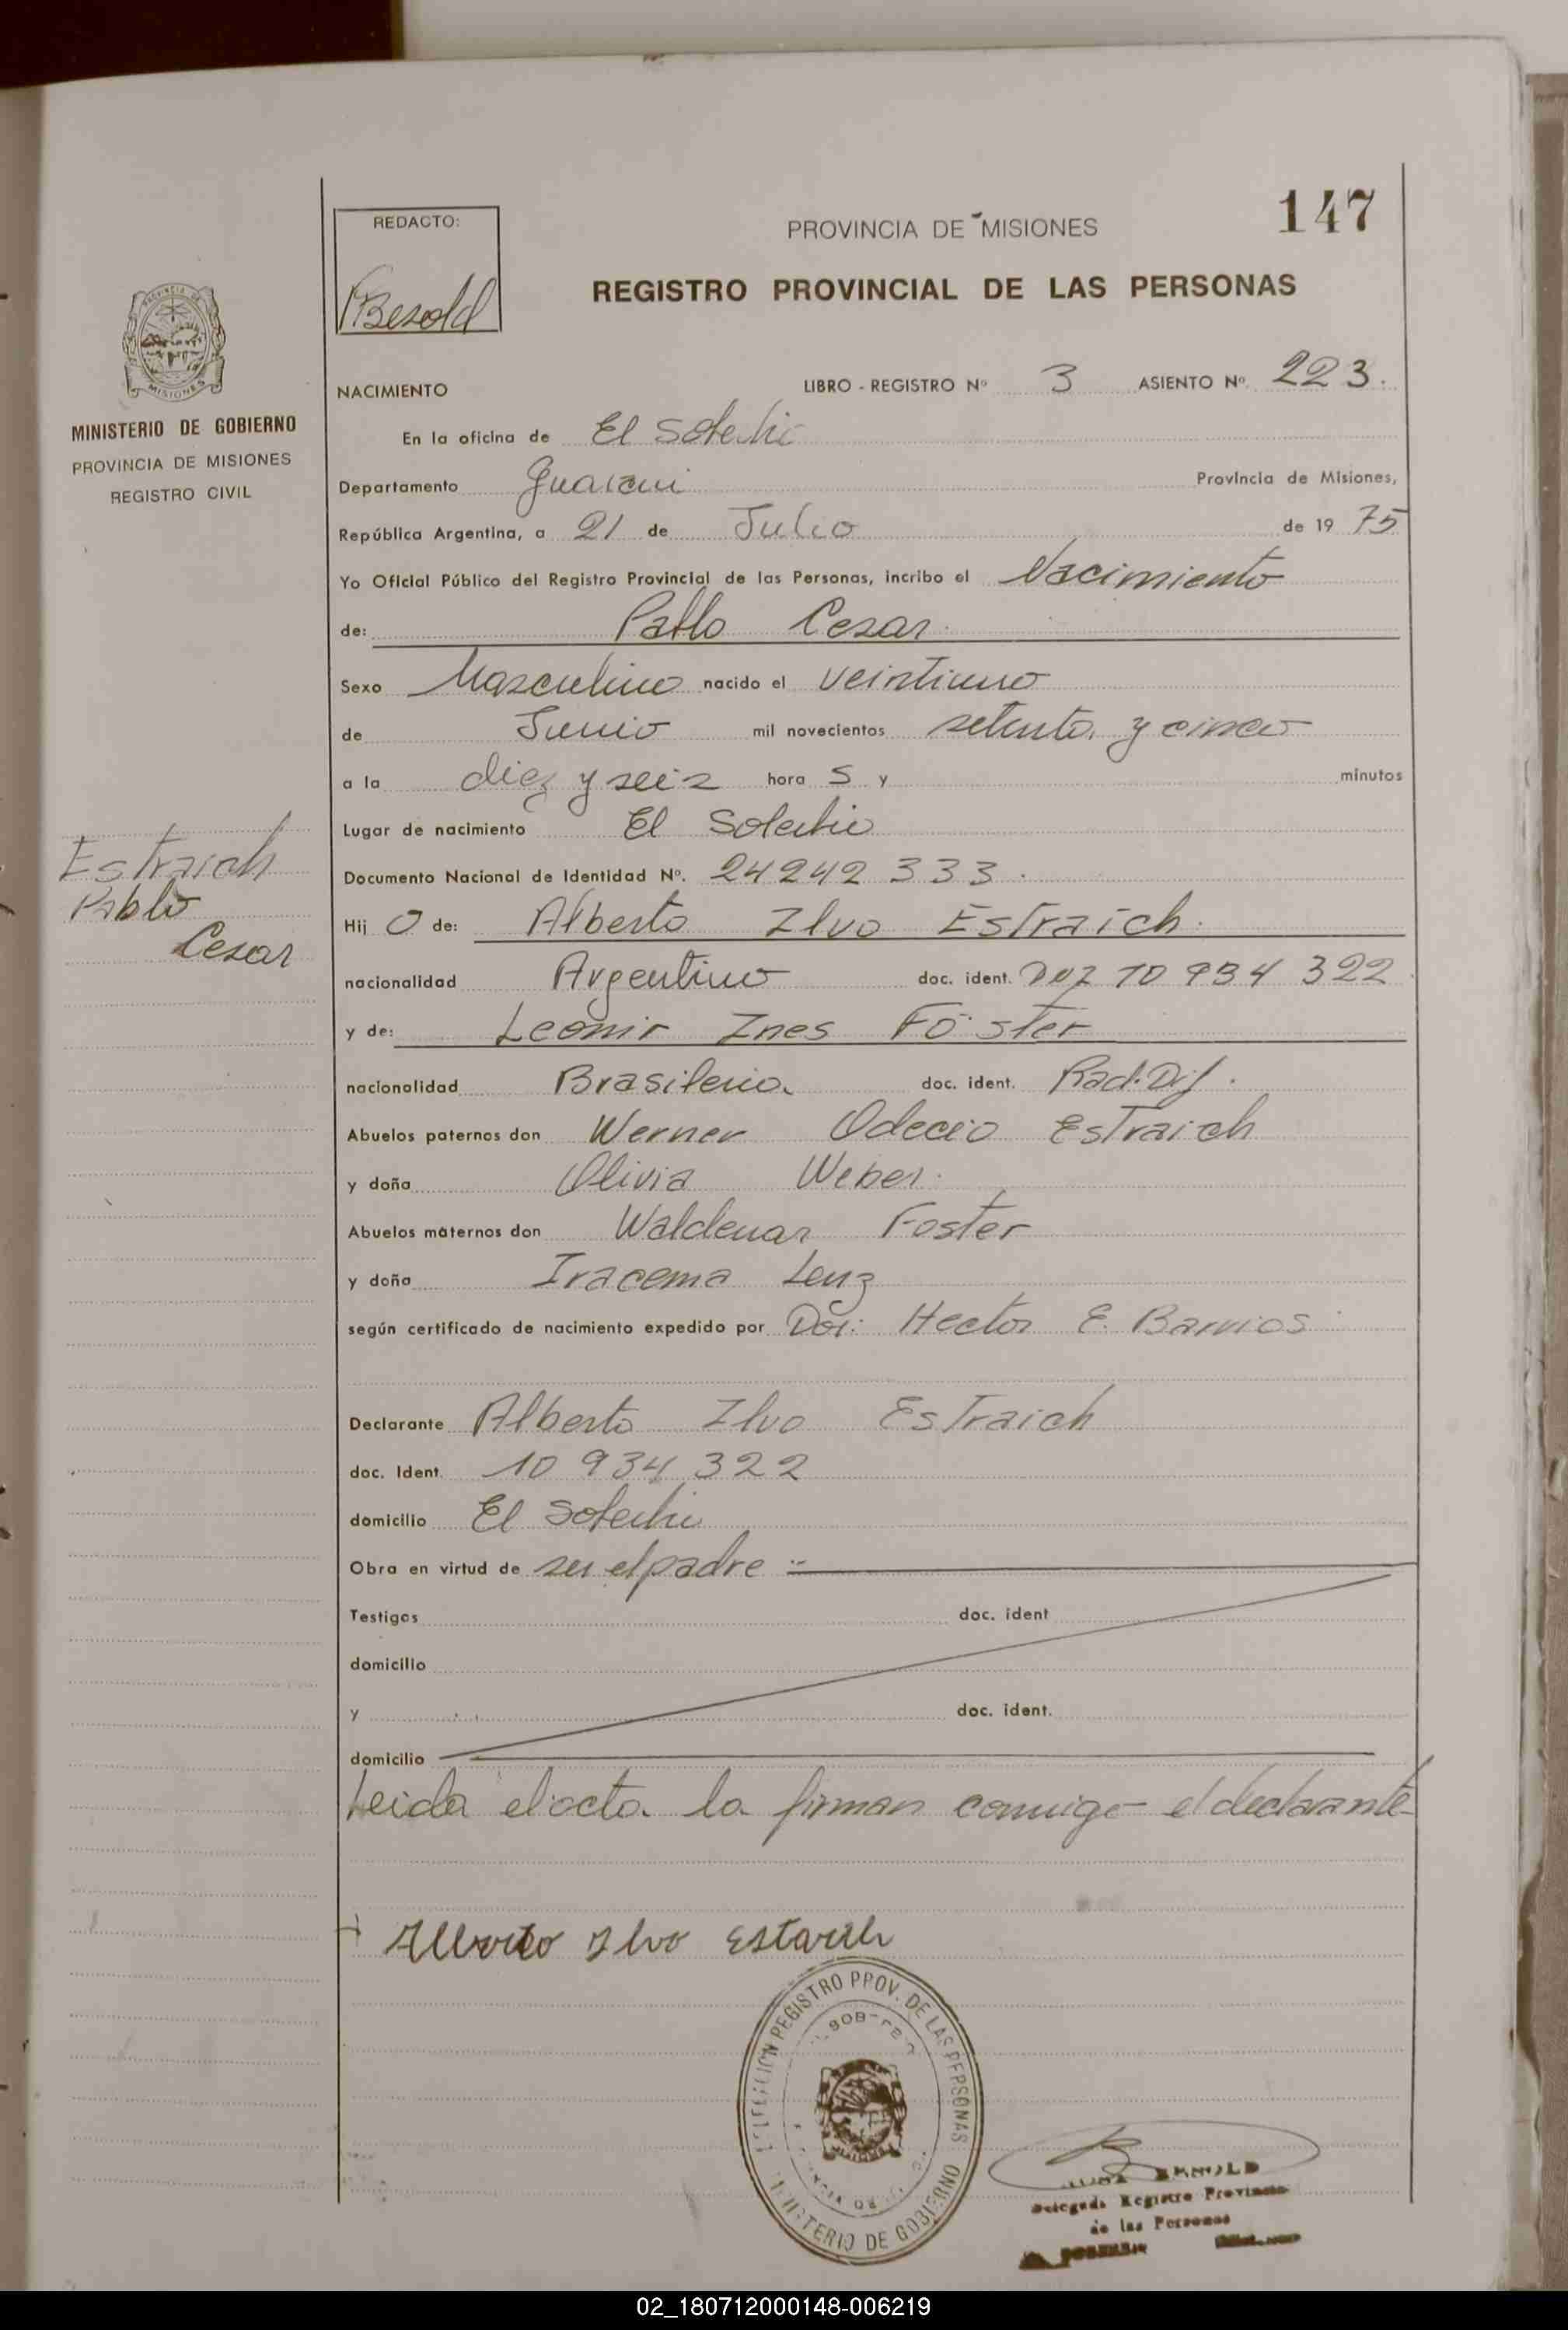 147
REDACTO:
PROVINCIA DE MISIONES
Besold
REGISTRO PROVINCIAL DE LAS PERSONAS
MINISTERIO DE GOBIERNO
PROVINCIA DE MISIONES
REGISTRO CIVIL
NACIMIENTO LIBRO - REGISTRO Nº 3 ASIENTO Nº. 223.
En la oficina de El Soberbio
Departamento Guarani Provincia de Misiones,
República Argentina, a 21 de Julio de 19 75
Yo Oficial Público del Registro Provincial de las Personas, incribo el Nacimiento
de: Pablo Cesar.
Sexo Masculino nacido el veintiuno
de Junio mil novecientos setenta y cinco
a la diez y seis hora S y minutos
Lugar de nacimiento El Soberbio
Estraich
Pablo
Cesar
Documento Nacional de Identidad Nº. 24242333.
Hij o de: Alberto Ilvo Estraich.
nacionalidad Argentino doc. ident. DNI 10 934 322
y de: Leonir Ines Föster
nacionalidad Brasileña doc. ident. Rad. Dif.
Abuelos paternos don Werner Odecio Estraich
y doña Olivia Weber.
Abuelos maternos don Waldemar Foster
y doña Iracema Lenz
según certificado de nacimiento expedido por Dor: Hector E. Barrios
Declarante Alberto Ilvo Estraich
doc. Ident. 10 934 322
domicilio El Soberbio
Obra en virtud de ser el padre :-
Testigos doc. ident
domicilio
y doc. ident.
domicilio
Leida el acta la firman conmigo el declarante
Alberto Ilvo
REGISTRO PROV. DE LAS PERSONAS
MINISTERIO DE GOBIERNO
Delegada Registro Provincial
de las Personas
02_180712000148-006219